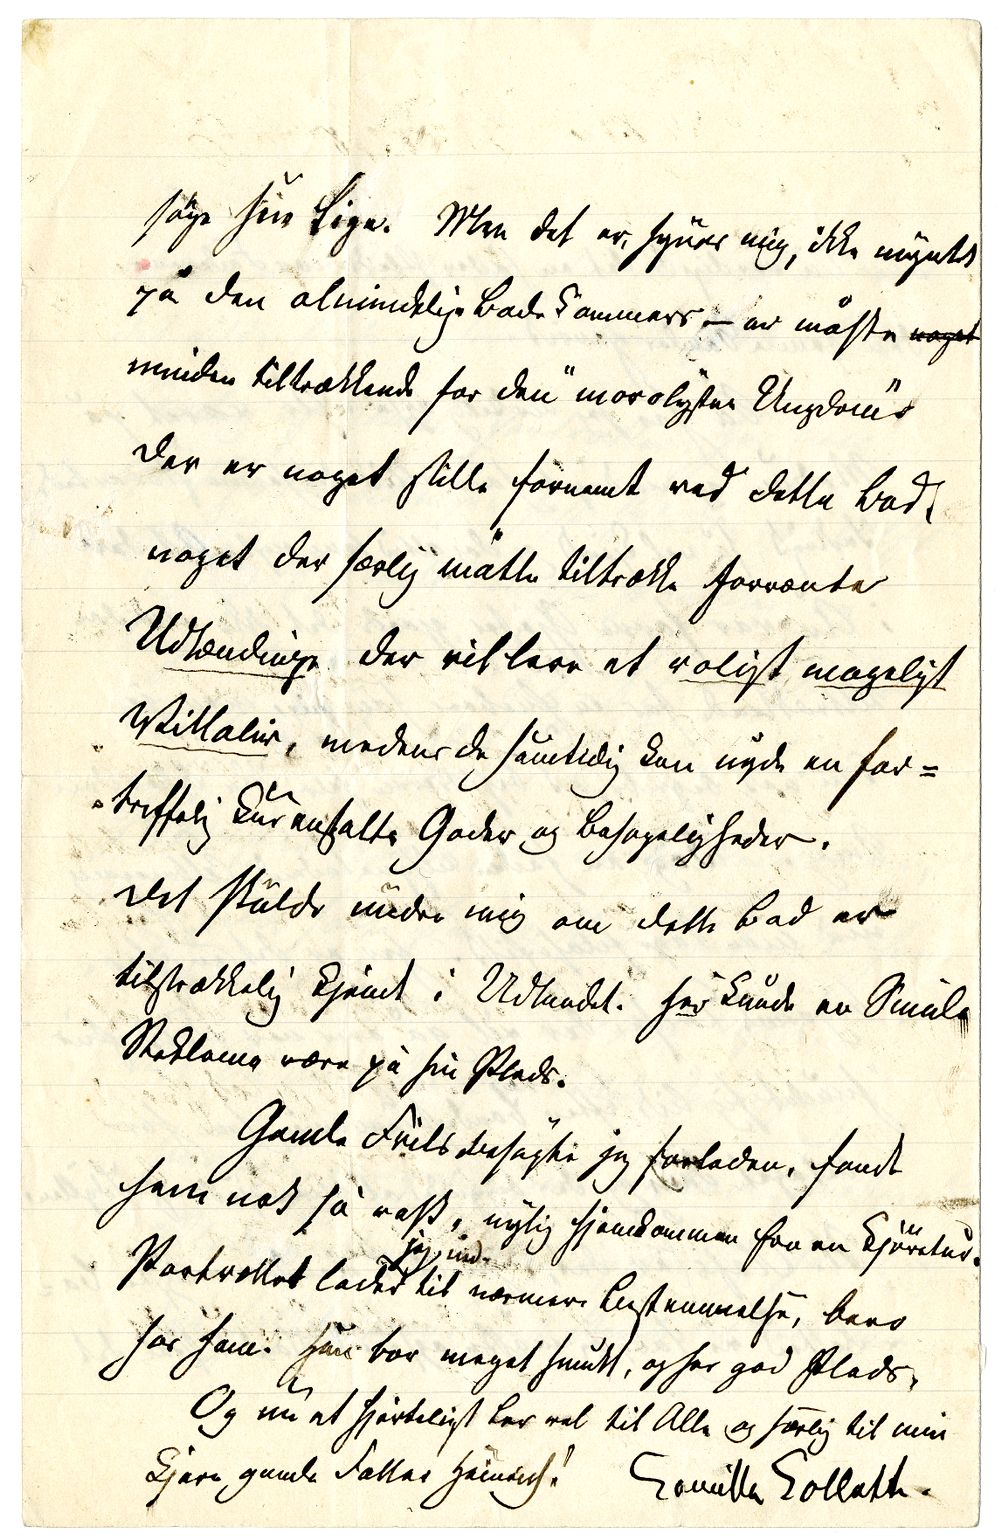 søge sin Lige. Men det er, synes mig, ikke myntet
på den almindelige Bade Commers — er måske noget
minden tiltrækkende for den "morolystne Ungdom"
Der er noget stille fornemt ved dette Bad,
noget der særlig måtte tiltrække forvænte
Udlændinge der vil leve et roligt mageligt
Villaliv, medens de samtidig kan nyde en for=
træffelig Kuranstalts Goder og Behageligheder.
Det skulde undre mig om dette Bad er
tilstrækkelig kjendt i Udlandet. Her kunde en Smule
Reklame være på sin Plads.
Gamle Friis besøgte jeg forleden, fandt
ham nok så rask, nylig hjemkommen fra en Kjøretur.
jeg, ind-
Portrættet lader til nærmere Bestemmelse, bero
hos ham. Han bor meget smukt, og har god Plads.
Og nu et hjerteligt lev vel til Alle og særlig til min
kjere gamle Fatter Heinrich! Camilla Collett.